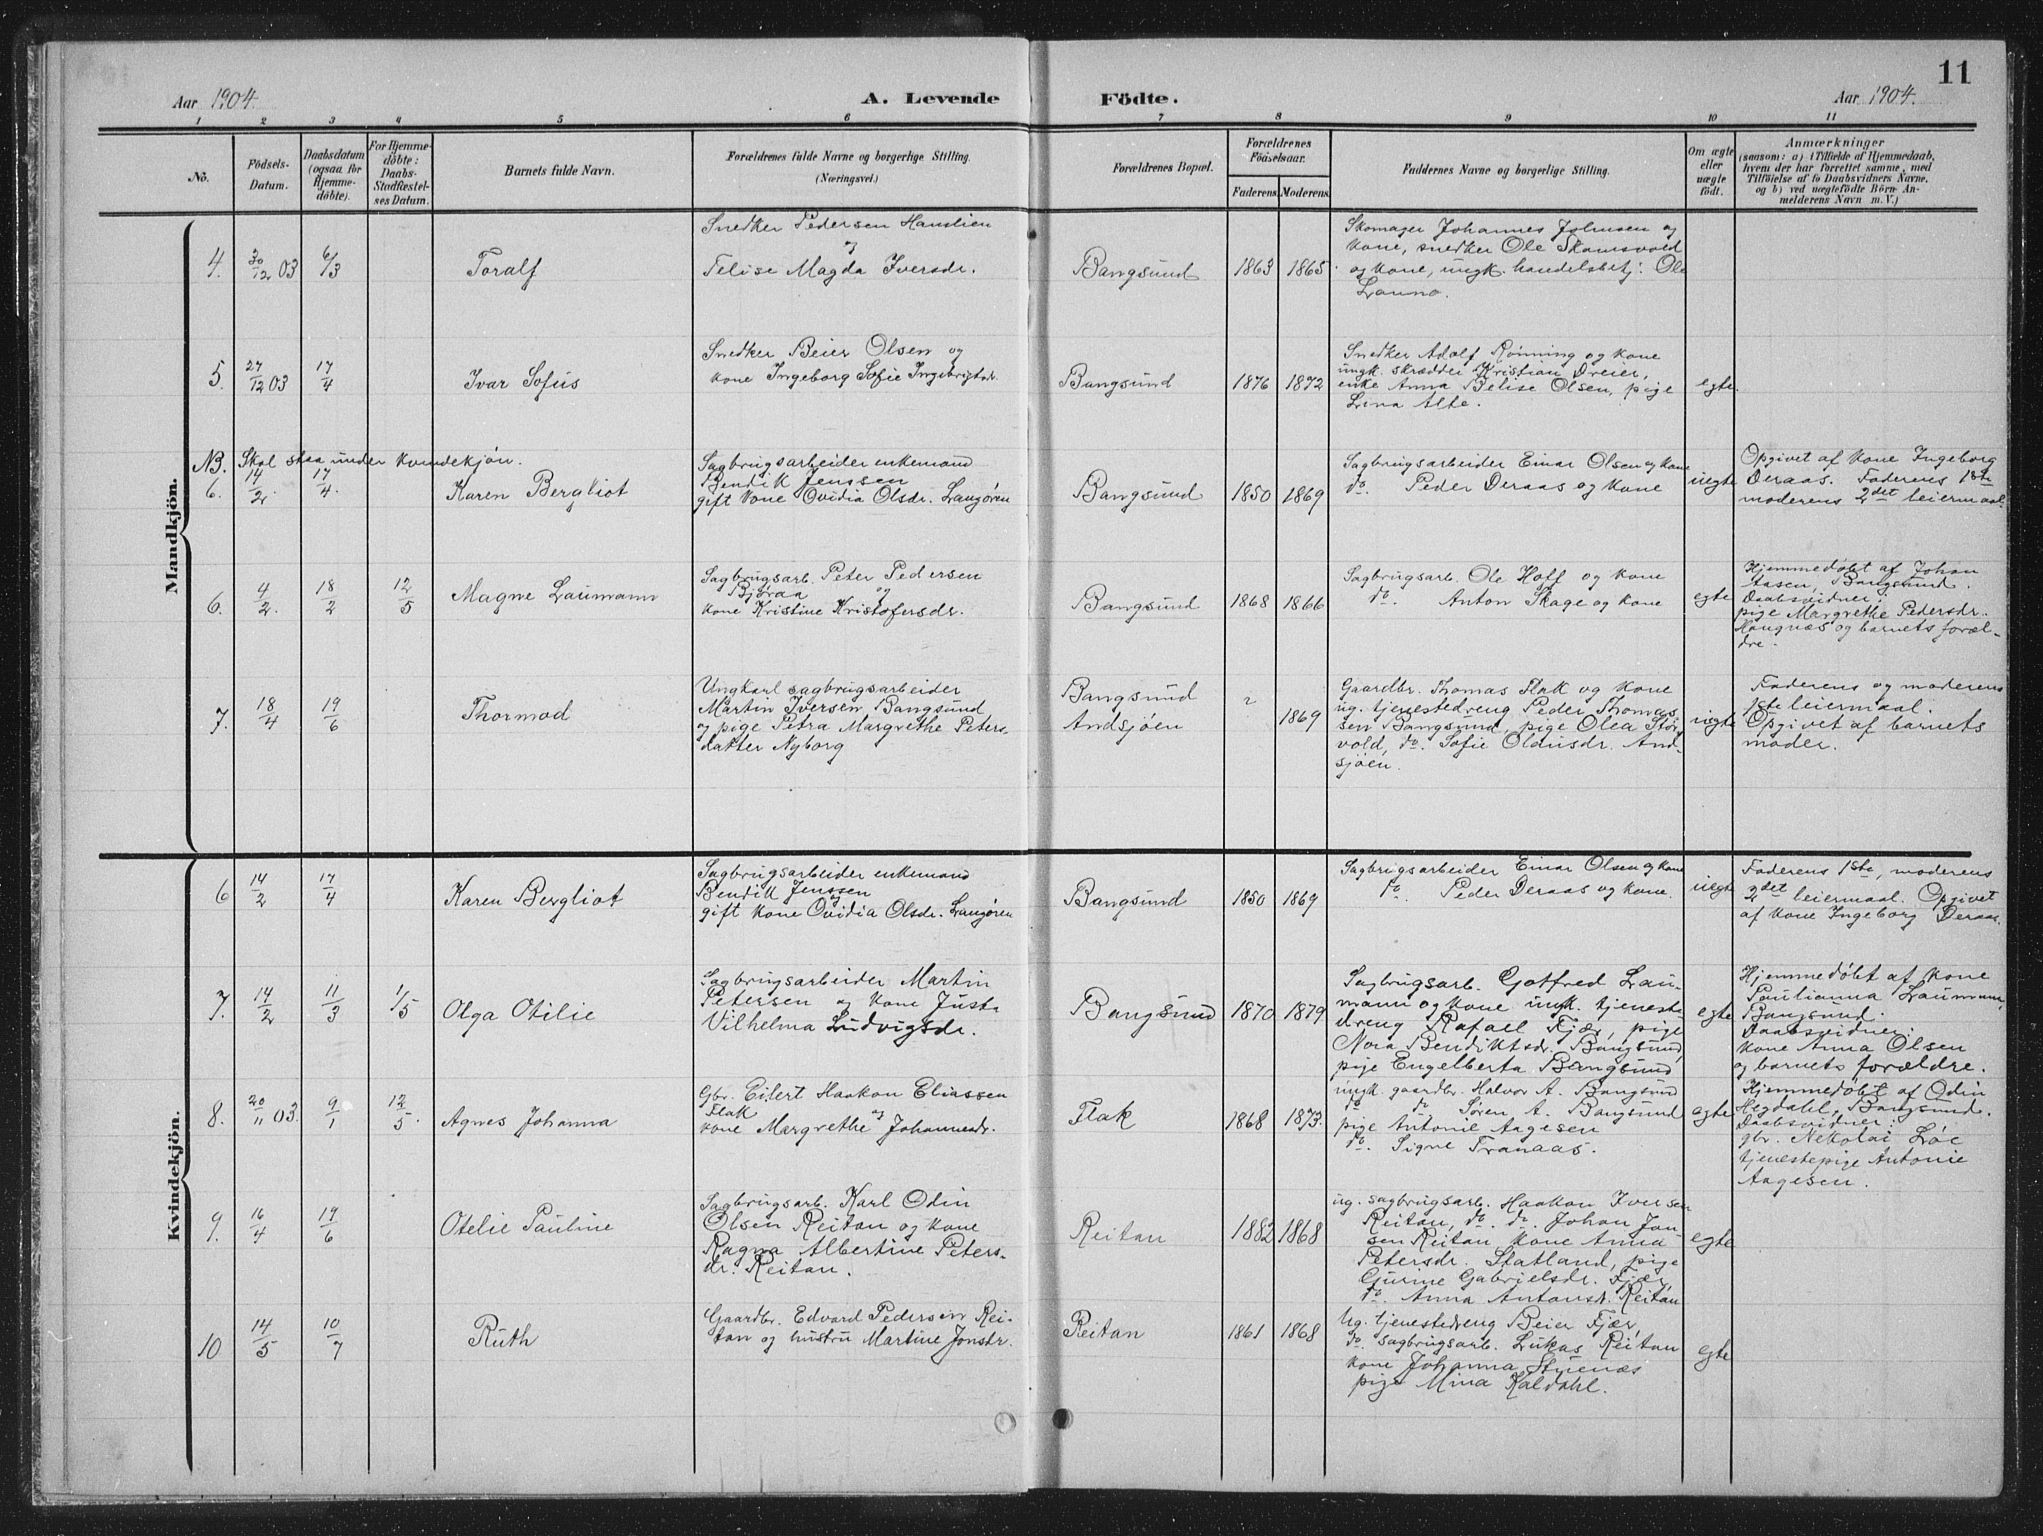 11
Aar 1904.
A. Levende Födte.
Aar 1904.
1 2 3 4 5 6 7 8 9 10 11
No.
Födsels-
Datum.
Daabsdatum
(ogsaa for
Hjemme-
döbte).
For Hjemme-
döbte:
Daabs-
Stadfæstel-
ses Datum.
Barnets fulde Navn.
Forældrenes fulde Navne og borgerlige Stilling.
(Næringsvei.)
Forældrenes Bopæl.
Forældrenes
Födselsaar.
Faderens. Moderens.
Faddernes Navne og borgerlige Stilling.
Om ægte
eller
uægte
födt.
Anmærkninger
(saasom: a) i Tilfælde af Hjemmedaab,
hvem der har forrettet samme, med
Tilföielse af to Daabsvidners Navne,
og b) ved uægtefödte Börn An-
melderens Navn m. V.)
Mandkjön.
4. 30/12 03 6/3 Toralf
Snedker Pedersen Hanslien
og
Felise Magda Iversdr.
Bangsund 1863 1865
Skomager Johannes Johnsen og
kone, snedker Ole Skomsvold
og kone, ungk. handelsbetj. Ole
Launo.
5. 27/12 03 17/4 Ivar Sofus
Snedker Beier Olsen og
kone Ingeborg Sofie Ingebrigtsdr.
Bangsund 1876 1872
Snedker Adolf Rønning og kone
ungk. skrædder Kristian Dreier,
enke Anna Belise Olsen, pige
Lina Alte.
egte.
NB. Skal staa under kvindekjøn.
6. 14/2. 17/4. Karen Bergliot
Sagbrugsarbeider enkemand
Bendik Jenssen
gift kone Ovidia Olsdr. Langøren
Bangsund 1850 1869
Sagbrugsarbeider Einar Olsen og kone
do. Peder Deraas og kone
uegte
Opgivet af kone Ingeborg
Deraas. Faderens 1ste
moderens 2det leiermaal.
6. 4/2. 18/2 12/5 Magne Laumann
Sagbrugsarb. Peter Pedersen
Bjøraa og
kone Kristine Kristofersdr.
Bangsund 1868 1866
Sagbrugsarb. Ole Hoff og kone
do. Anton Skage og kone
egte
Hjemmedøbt af Johan
Aasen, Bangsund.
Daabsvidner:
pige Margrethe Pedersdr.
Haugnæs og barnets foræl-
dre.
7. 18/4 19/6 Thormod
Ungkarl sagbrugsarbeider
Martin Iversen Bangsund
og pige Petra Margrethe Peters-
datter Nyborg
Bangsund
Andsjøen
? 1869
Gaardbr. Thomas Flak og kone
ug. tjenestedreng Peder Thomas-
sen Bangsund, pige Olea Stor-
vold, do. Sofie Oldusdr. And-
sjøen.
uegte
Faderens og moderens
1ste leiermaal.
Opgivet af barnets
moder.
Kvindekjön.
6 14/2 17/4 Karen Bergliot
Sagbrugsarbeider enkemand
Bendik Jenssen
og
gift kone Ovidia Olsdr. Langøren
Bangsund 1850 1869
Sagbrugsarbeider Einar Olsen og kone
do. Peder Deraas og kone
uegte
Faderens 1ste, moderens
2det leiermaal. Opgivet
af kone Ingeborg Deraas.
7. 14/2 11/3 1/5 Olga Otilie
Sagbrugsarbeider Martin
Petersen og kone Juste
Vilhelma Ludvigsdr.
Bangsund 1870 1879
Sagbrugsarb. Gotfred Lau-
mann og kone ungk. tjeneste
dreng Rafael Fjær, pige
Nora Bendiktsdr. Bangsund
pige Engelberta Bangsund
egte
Hjemmedøbt af kone
Paulianna Laumann,
Bangsund.
Daabsvidner:
kone Anna Olsen
og barnets forældre.
8. 20/11 03. 9/1 12/5. Agnes Johanna
Gbr. Eilert Haakon Eliassen
Flak og
kone Margrethe Johannesdr.
Flak 1868 1873.
ungk. gaardbr. Halvor A. Bangsund
do do Søren A. Bangsund
pige Antonie Aagesen
do. Signe Tranaas.
egte
Hjemmedøbt af Odin
Hegdahl, Bangsund.
Daabsvidner:
gbr. Nikolai Løe
tjenestepige Antonie
Aagesen.
9. 16/4 19/6 Otelie Pauline
Sagbrugsarb. Karl Odin
Olsen Reitan og kone
Ragna Albertine Peters-
dr. Reitan.
Reitan 1882 1868
ug. sagbrugsarb. Haakon Iversen
Reitan, do. do. Johan Jon-
sen Reitan, kone Anna
Petersdr. Statland, pige
Gurine Gabrielsdr. Fjær,
do. Anna Antonsd. Reitan
egte
10 14/5 10/7 Ruth
Gaardbr. Edvard Pedersen Rei-
tan og hustru Martine Jonsdr.
Reitan 1861 1868
Ug. tjenestedreng Beier Fjær,
do. sagbrugsarb. Lukas Reitan
kone Johanna Stuenæs
pige Mina Kaldahl.
egte